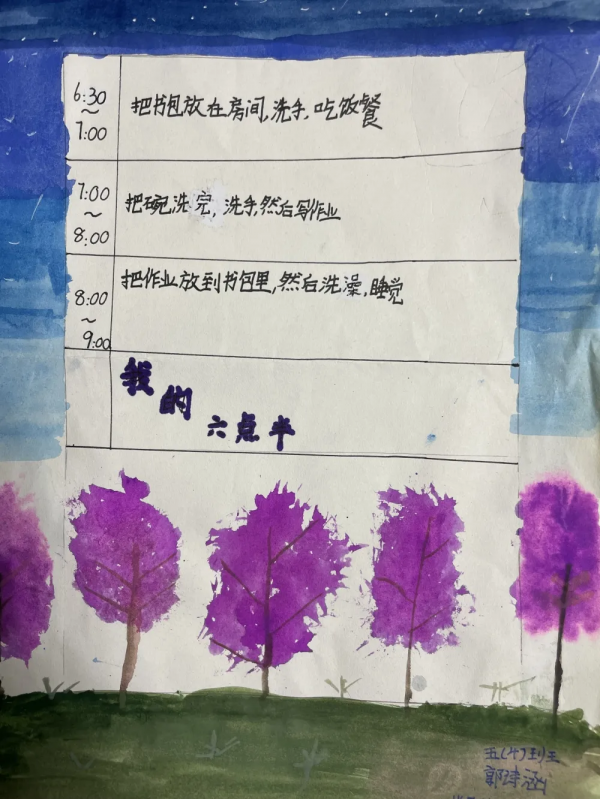 6:30
~
7:00
把书包放在房间,洗手,吃饭餐
7:00
~
8:00
把碗洗完,洗手,然后写作业
8:00
~
9:00
把作业放到书包里,然后洗澡,睡觉
我的
六点半
五(4)班
郭诗涵